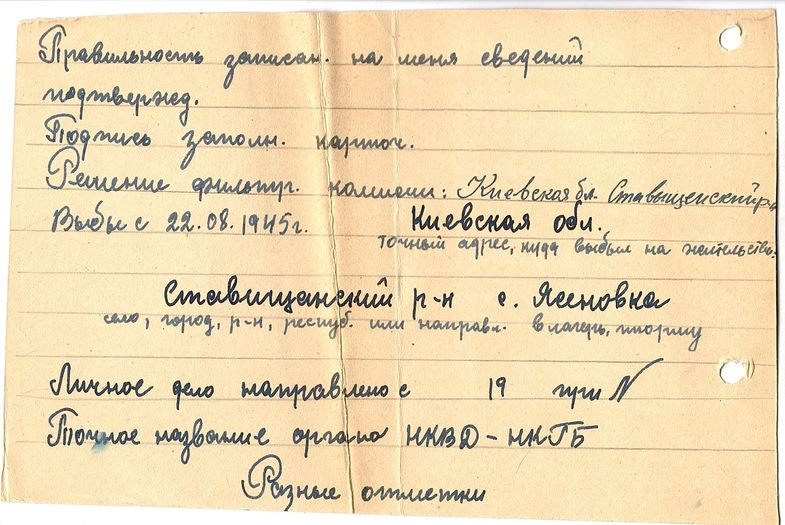 Правильность записан. на меня сведений
подтвержд.
Подпись заполн. карточ.
Решение фильтр. комиссии: Киевская бл. Ставищенский р-н
Выбыс 22.08.1945г. Киевская обл.
точный адрес, куда выбыл на жительство
Ставищанский р-н с. Ясеновка
село, город, р-н, респуб. или направл. в лагерь, тюрьму
Личное дело направлено с 19 при N
Точное название органа НКВД-НКГБ
Разные отметки